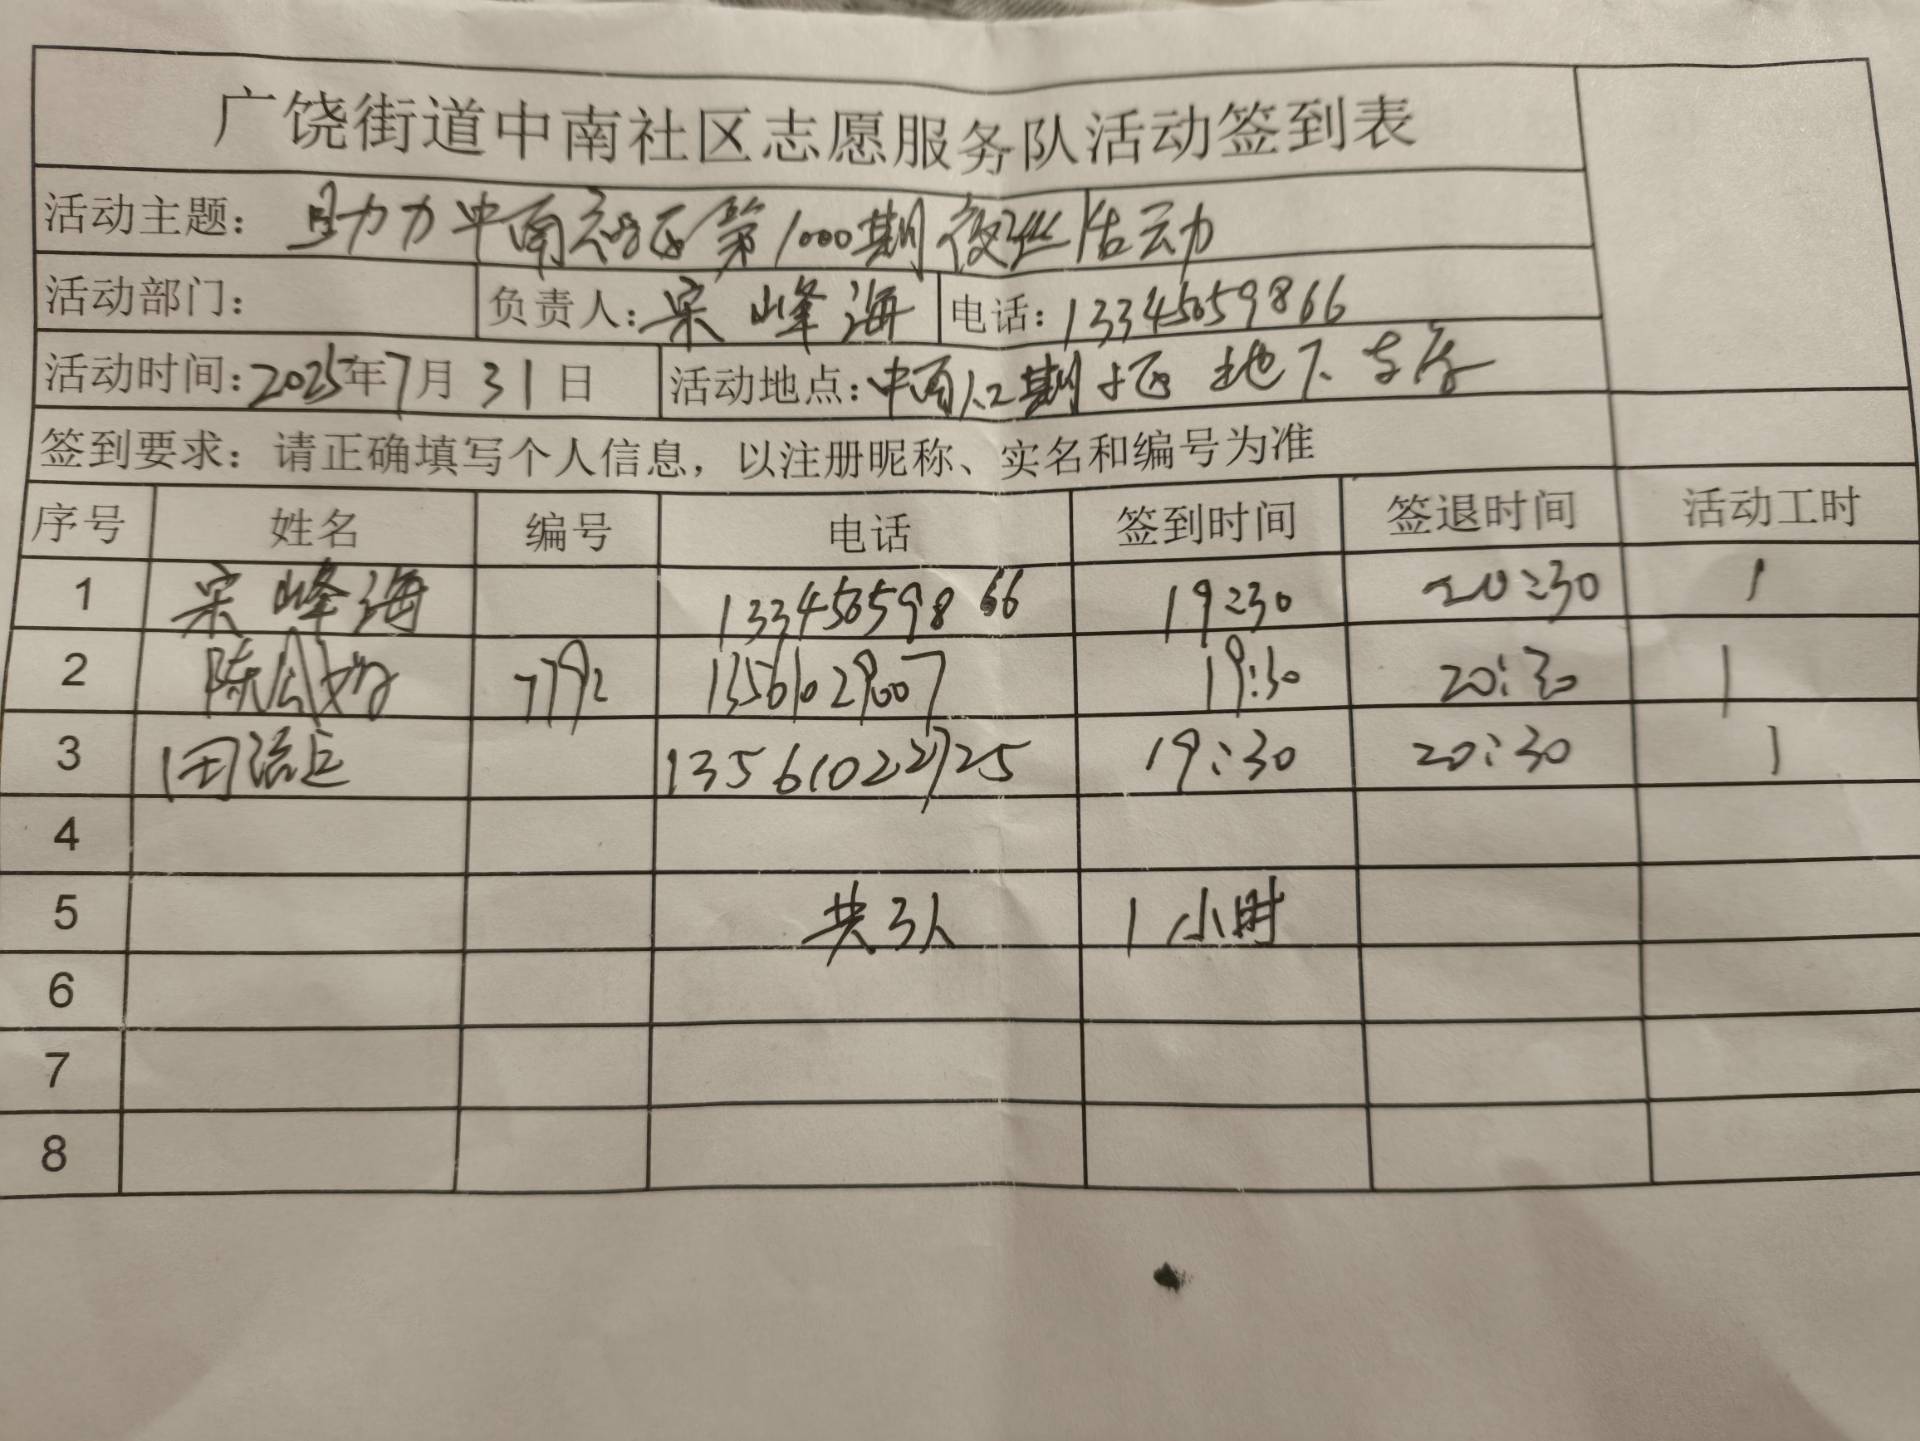 广饶街道中南社区志愿服务队活动签到表
活动主题： 助力中南社区第1000期夜巡活动
活动部门： 负责人：宋峰海 电话：13345059866
活动时间：2025年7月31日 活动地点：中南 期 区 地下车库
签到要求：请正确填写个人信息，以注册昵称、实名和编号为准
序号 姓名 编号 电话 签到时间 签退时间 活动工时
1 宋峰海 13345059866 19:30 20:30 1
2 陈 7792 13561029007 19:30 20:30 1
3 田 13561022725 19:30 20:30 1
4
5 共3人 1小时
6
7
8